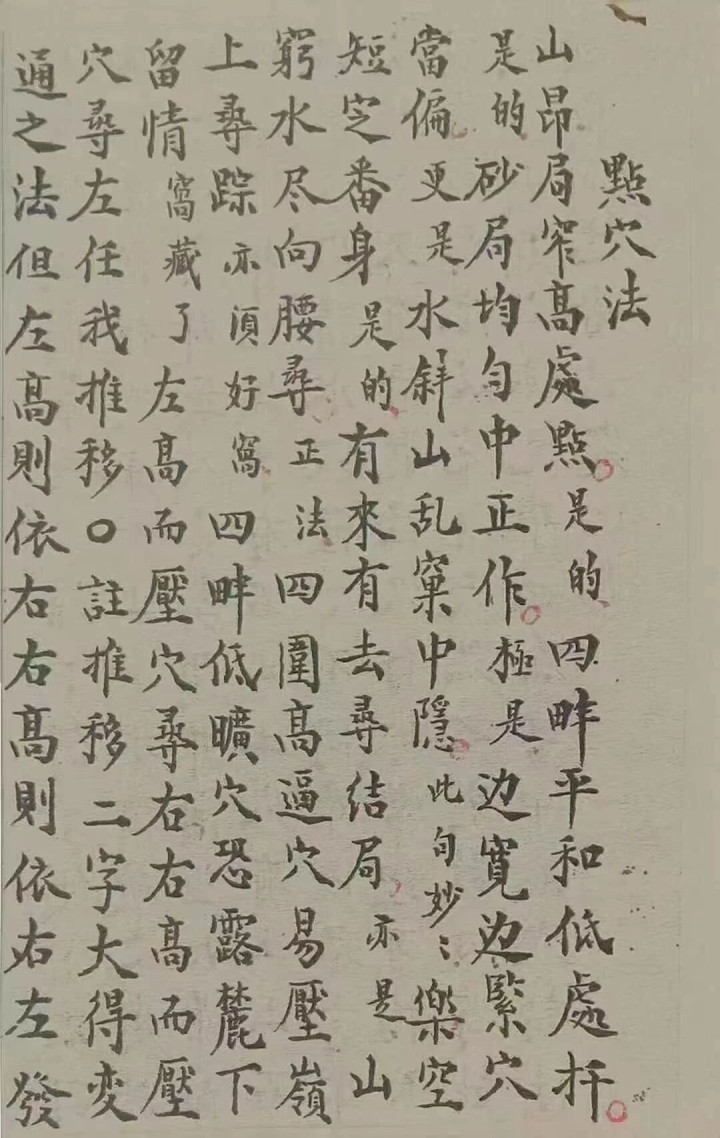 點穴法
山昂局窄高處點是的四畔平和低處扦
是的砂局均勻中正作極是边寬边緊穴
當偏更是水斜山乱窠中隱此句妙〻樂空
短定番身是的有來有去尋結局亦是山
窮水尽向腰尋正法四圍高逼穴易壓嶺
上尋踪亦須好窩四畔低曠穴恐露麓下
留情窩藏了左高而壓穴尋右右高而壓
穴尋左任我推移〇註推移二字大得变
通之法但左高則依右右高則依右左發